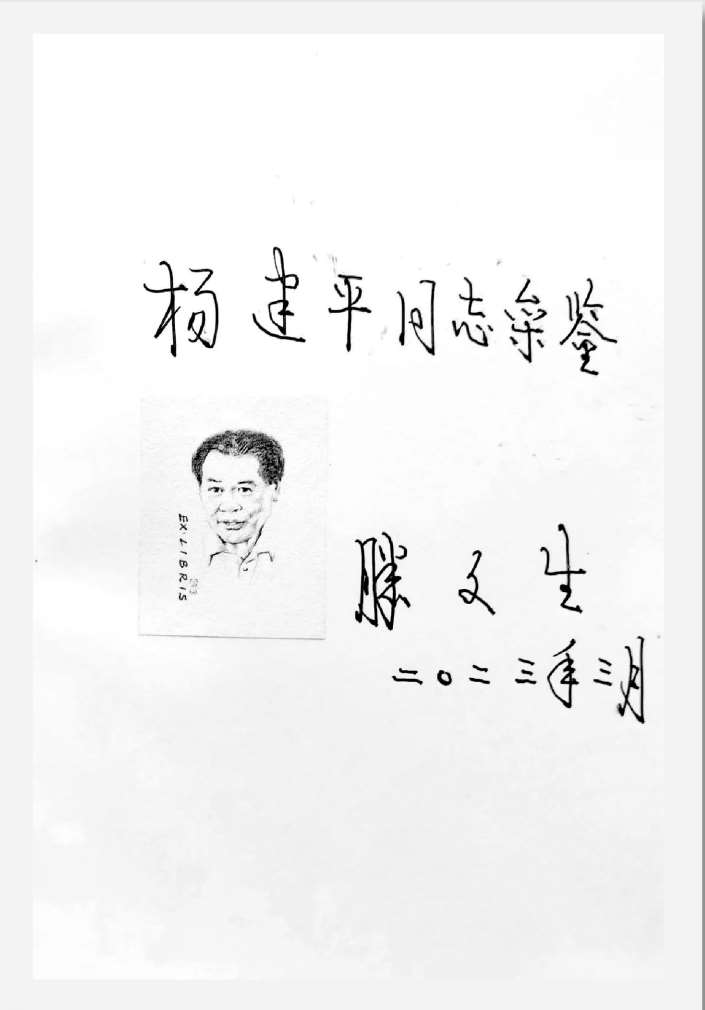 杨建平同志枀鉴
EX·LIBRIS
滕文生
二〇二三年三月